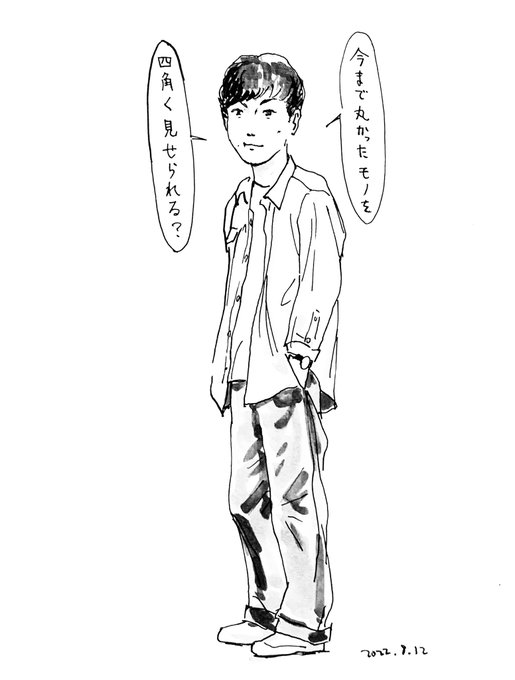 今まで丸かったモノを
四角く見せられる?
2022.8.12